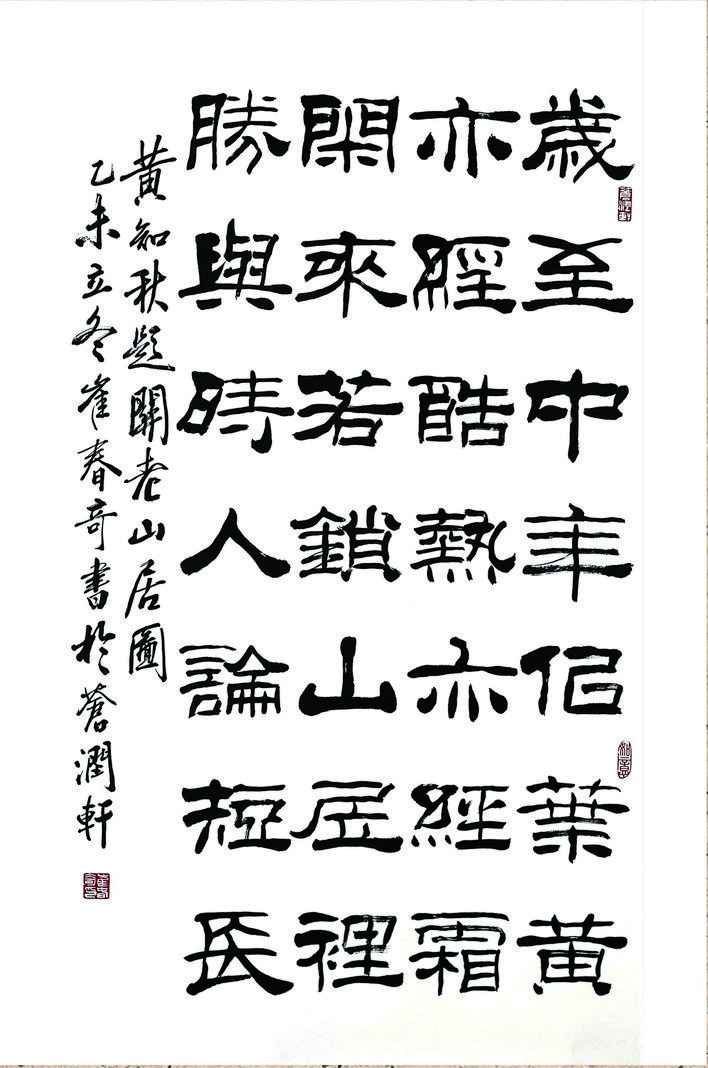 歲至中年佀葉黃
亦經酷熱亦經霜
閑來若鎖山居裡
勝與時人論短長
黃知秋題關老山居圖
乙未立冬崔春奇書於蒼潤軒
蒼潤軒
如意